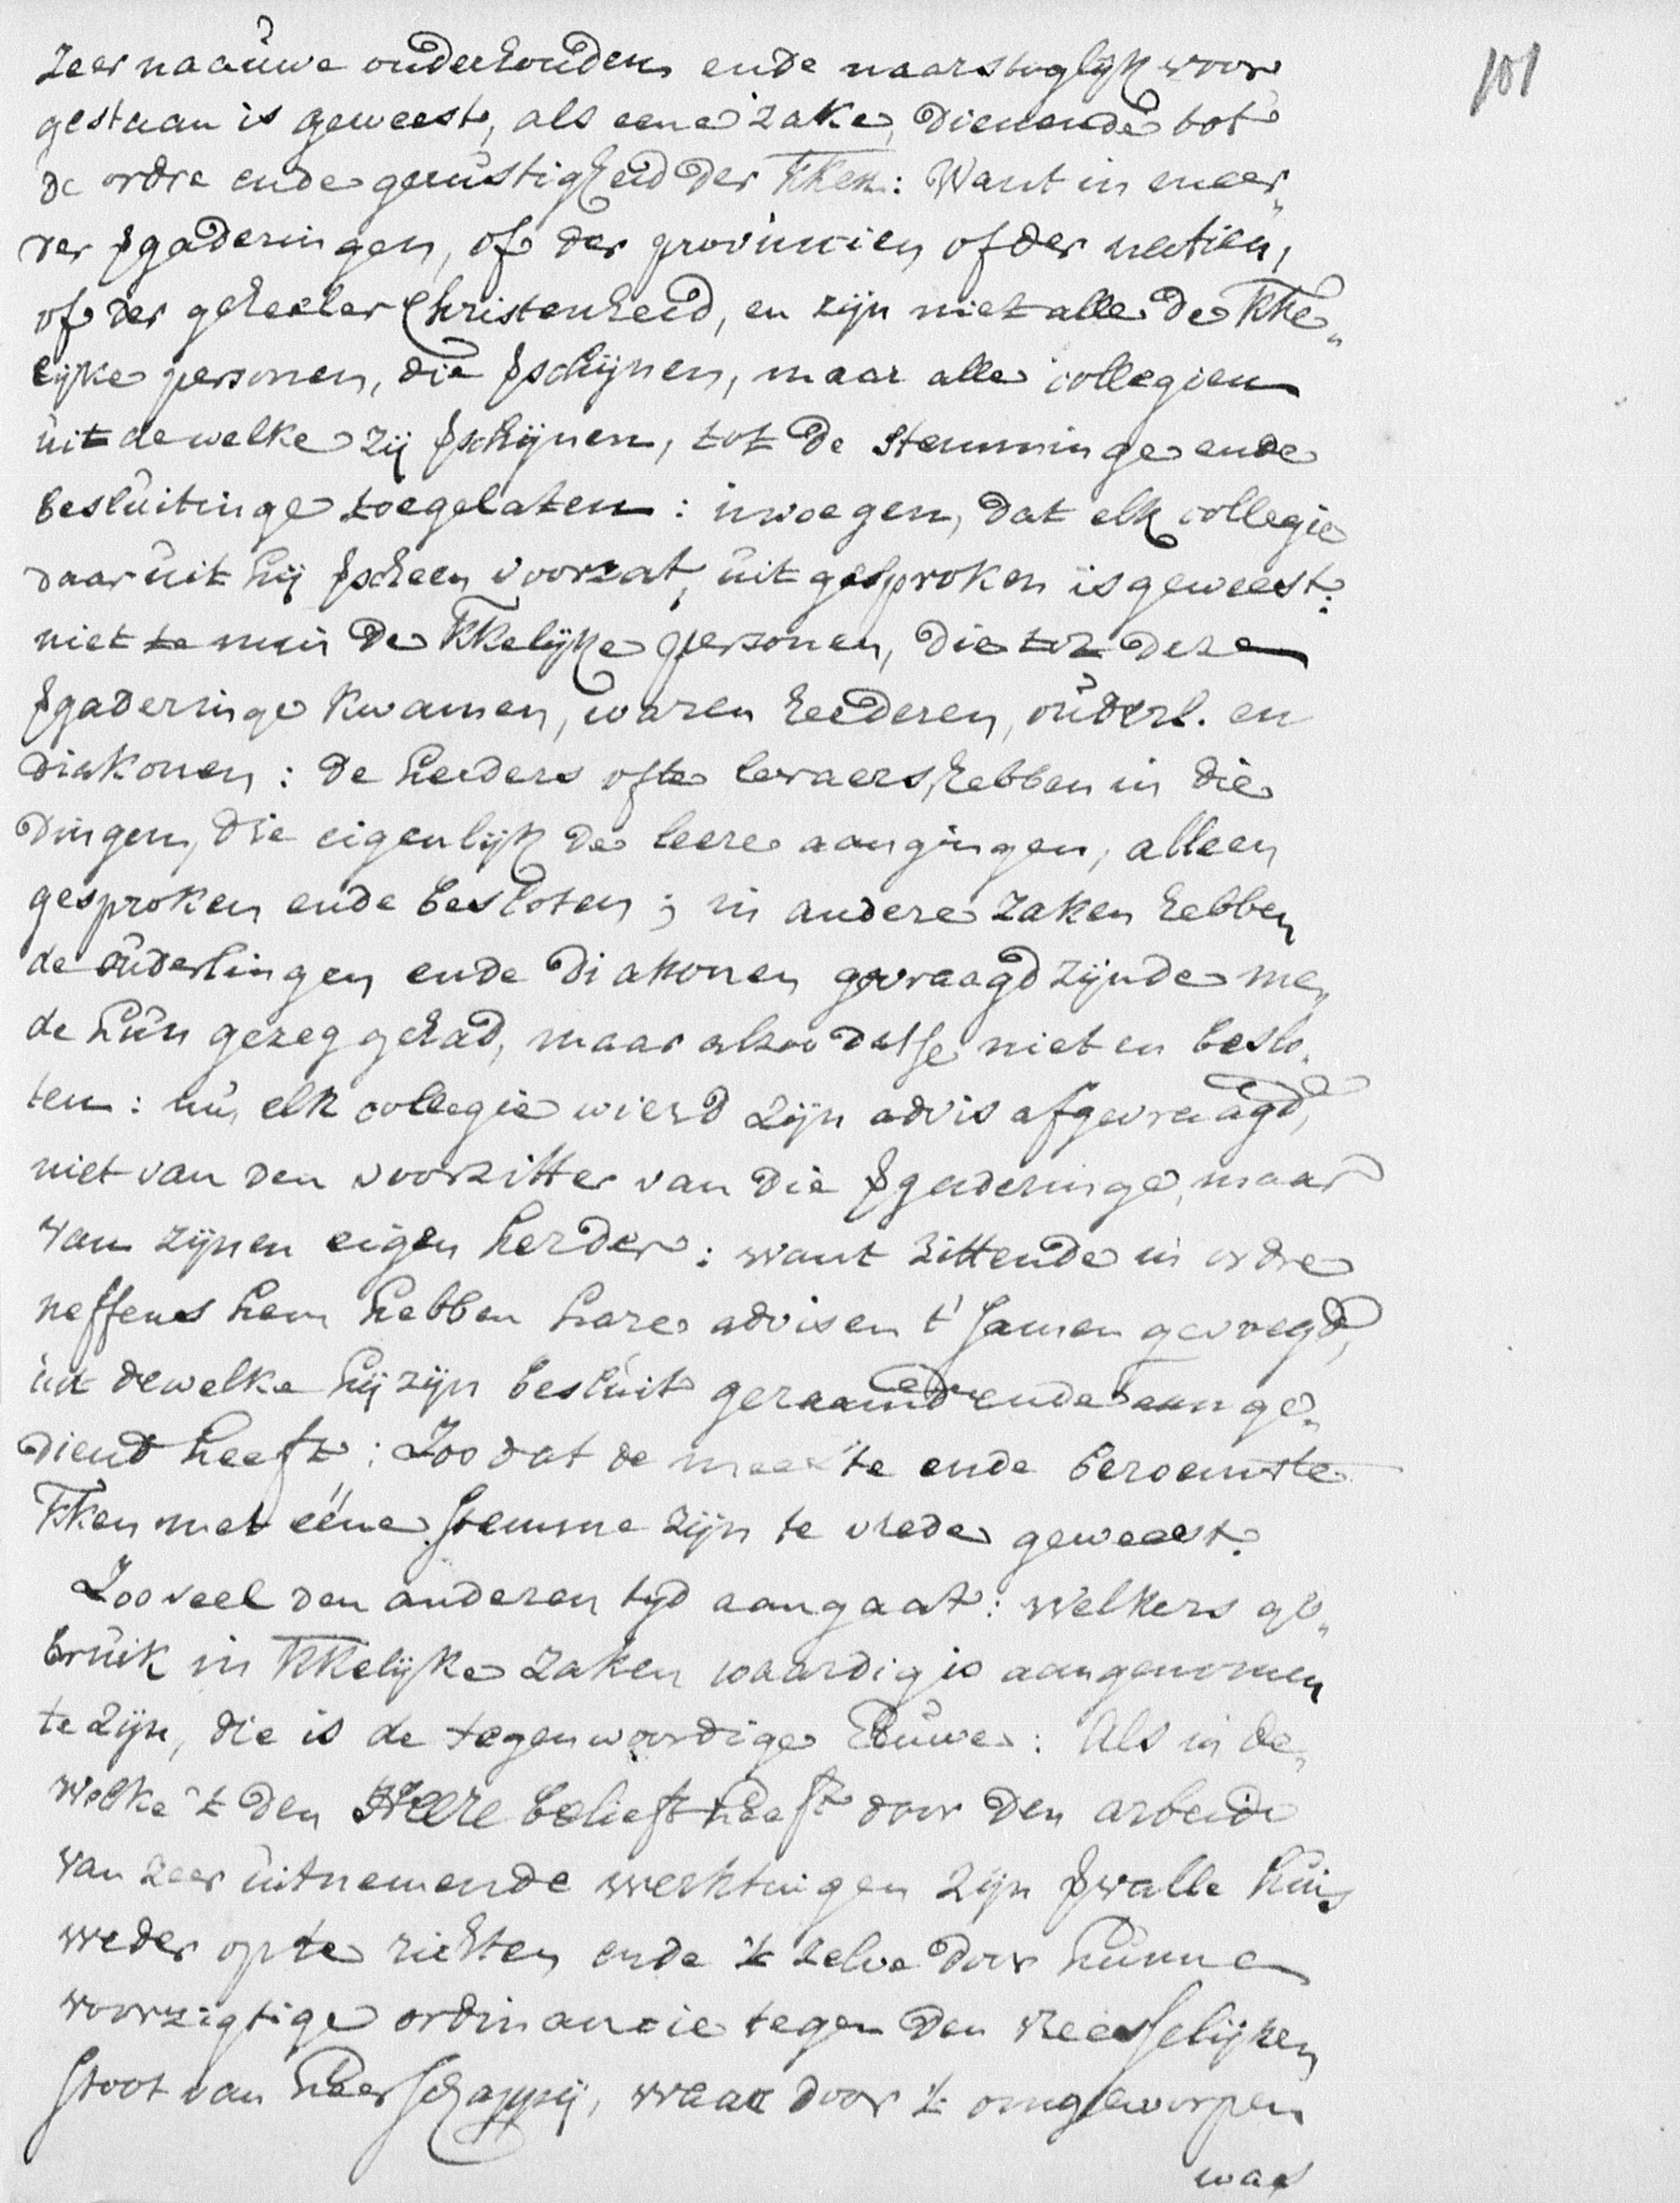 101
Zeer naauwe onderhouden, ende naarstiglijk voor
gestaan is geweest, als eene zake, dienende tot
de ordre ende gerustigheid der KKen: Want in meer„
der ꝟgaderingen, of der provincien of der natien,
of der geheeler Christenheid, en zijn niet alle de KKe„
lijke personen, die ꝟschijnen, maar alle collegien
uit dewelke zij ꝟschijnen, tot de stemminge ende
besluitinge toegelaten: invoegen, dat elk collegie
daar uit hij ꝟscheen voorzat, uitgesproken is geweest:
niet te min de KKelijke personen, die tot deze
ꝟgaderinge kwamen, waren herderen, ouderl. en
diakonen: de herders ofte leraers, hebben in die
dingen, die eigenlijk de leere aangingen, alleen
gesproken ende besloten; in andere zaken hebben
de ouderlingen ende diakonen gevraagd zijnde me„
de hun gezeg gehad, maar alzoo datse niet en beslo„
ten: nu, elk collegie wierd zijn advis afgevraagd,
niet van den voorzitter van die ꝟgaderinge, maar
van zijnen eigen herder: want zittende in ordre
neffens hem hebben hare advisen t' samen gevoegd,
uit dewelke hij zijn besluit geraamd ende aange„
diend heeft: Zoo dat de meeste ende beroemste
KKen met ééne stemme zijn te vrede geweest.
Zoo veel den anderen tijd aangaat: welkers ge„
bruik in KKelijke zaken waardig is aangenomen
te zijn, die is de tegenwoordige Eeuwe: Als in de„
welke 't den HEERE belieft heeft door den arbeide
van zeer uitnemende werktuigen zijn ꝟvalle huis
weder op te richten ende 't zelve door hunne
voorzigtige ordinancie tegen den vreesselijken
stoot van heerschappij, waar door 't omgeworpen
was